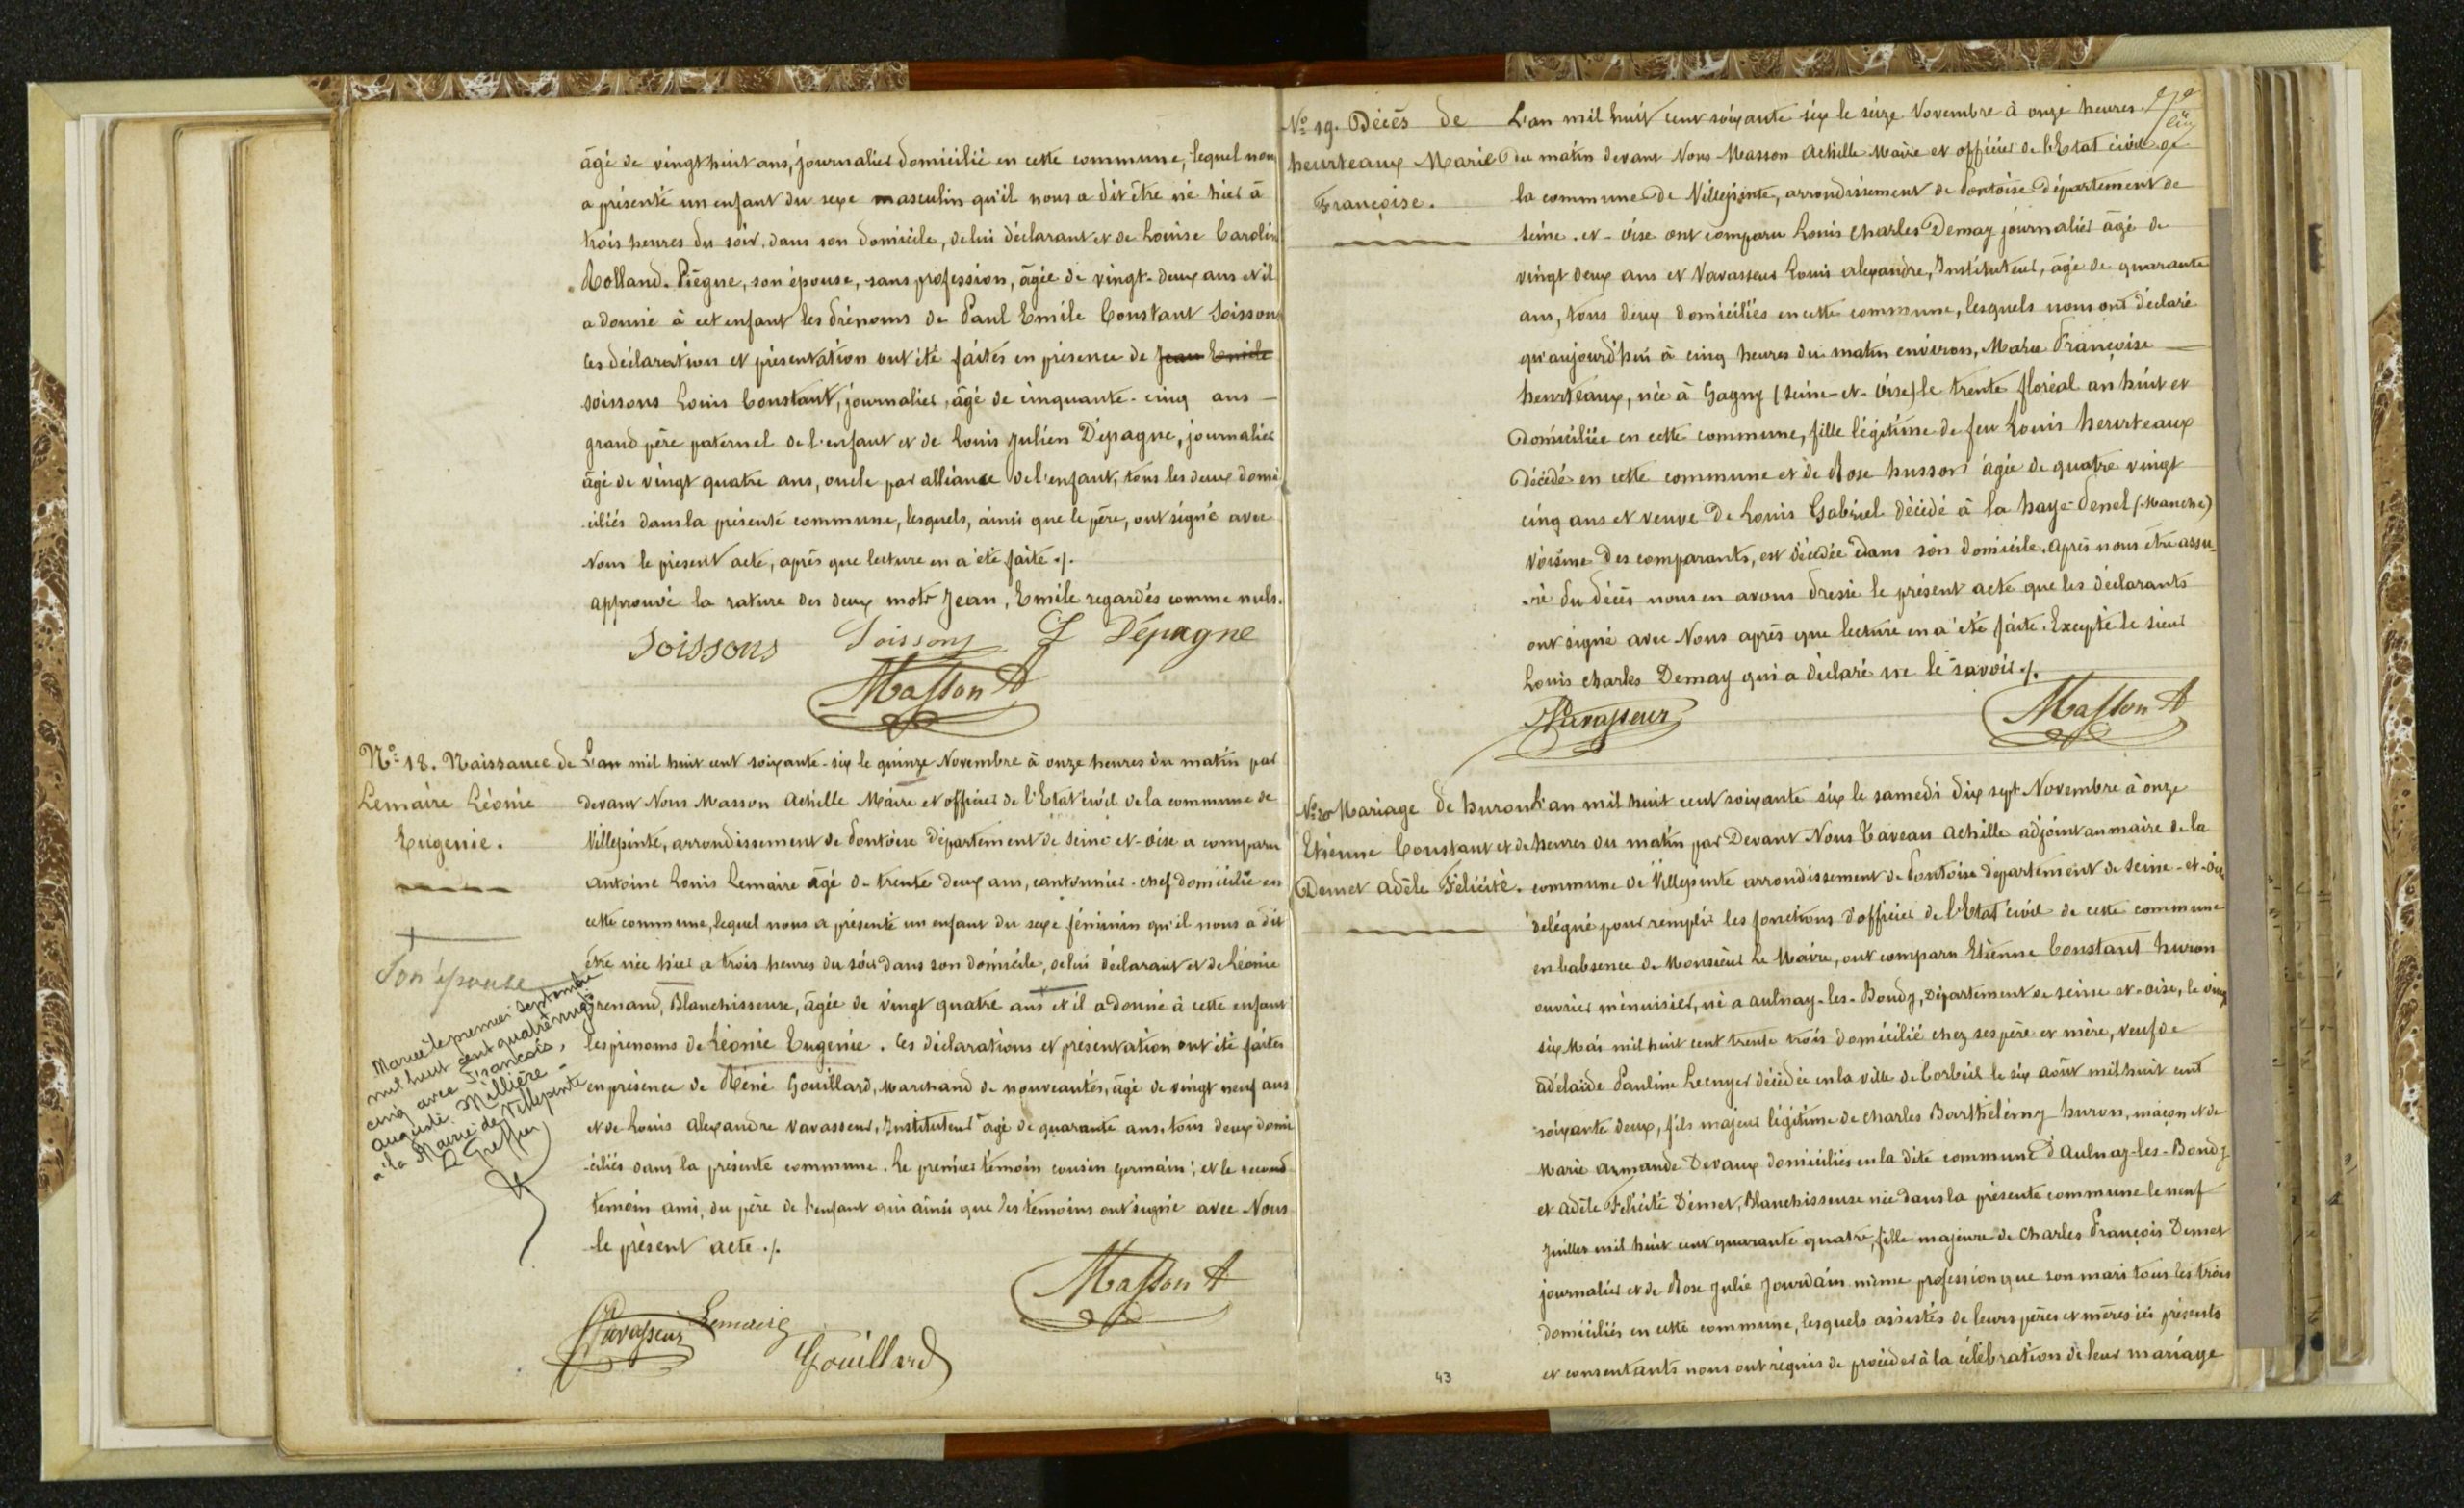 âgé de vingt huit ans, journalier domicilié en cette commune, lequel nous
a présenté un enfant du sexe masculin qu'il nous a dit être né hier à
trois heures du soir, dans son domicile, de lui déclarant et de Louise Caroline
Rolland-Piègne, son épouse, sans profession, âgée de vingt-deux ans et il
a donné à cet enfant les prénoms de Paul Emile Constant Soissons
ces déclaration et présentation ont été faites en présence de Jean Emile
soissons Louis Constant, journalier, âgé de cinquante-cinq ans —
grand père paternel de l'enfant et de Louis Julien Dépagne, journalier
âgé de vingt quatre ans, oncle par alliance de l'enfant, tous les deux domi
-ciliés dans la présente commune, lesquels, ainsi que le père, ont signé avec
Nous le présent acte, après que lecture en a été faite ./.
approuvé la rature des deux mots Jean, Emile regardés comme nuls.
Soissons Soissons J Dépagne
Masson A
N° 18. Naissance de
Lemaire Léonie
Eugenie.
Son épouse
Mariée le premier Septembre
mil huit cent quatrevingt
cinq avec François,
Auguste Millière -
à la Mairie de Villepinte
Le Greffier
L'an mil huit cent soixante-six le quinze Novembre à onze heures du matin par
devant Nous Masson Achille Maire et officier de l'Etat civil de la commune de
Villepinte, arrondissement de Pontoise département de Seine-et-oise a comparu
Antoine Louis Lemaire âgé de trente deux ans, cantonnier-chef domicilié en
cette commune, lequel nous a présenté un enfant du sexe féminin qu'il nous a dit
être née hier a trois heures du soir dans son domicile, de lui déclarant et de Léonie
Grenand, Blanchisseuse, âgée de vingt quatre ans et il a donné à cette enfant
les prénoms de Léonie Eugenie. Ces déclarations et présentation ont été faites
en présence de Réné Gouillard, Marchand de nouveautés, âgé de vingt neuf ans
et de Louis Alexandre Vavasseur, Instituteur âgé de quarante ans, tous deux domi
-ciliés dans la présente commune. Le premier témoin cousin germain; et le second
temoin ami, du père de l'enfant qui ainsi que les témoins ont signé avec Nous
le présent acte ./.
Masson A
Vavasseur Lemaire
Gouillard
N° 19. Décès de
heurteaux Marie
Françoise.
L'an mil huit cent soixante six le seize Novembre à onze heures
du matin devant Nous Masson Achille Maire et officier de l'Etat civil de
la commune de Villepinte, arrondissement de Pontoise département de
seine-et-oise ont comparu Louis Charles Demay journalier âgé de
vingt deux ans et Vavasseur Louis alexandre, Instituteur, âgé de quarante
ans, tous deux domiciliés en cette commune, lesquels nous ont déclaré
qu'aujourd'hui à cinq heures du matin environ, Marie Françoise —
heurteaux, née à Gagny (seine-et-oise) le trente floréal an huit et
domiciliée en cette commune, fille légitime de feu Louis heurteaux
décédé en cette commune et de Rose husson âgée de quatre vingt
cinq ans et veuve de Louis Gabriel décédé à la haye-Penel (Manche)
voisine des comparants, est décédée dans son domicile. Après nous être assu-
-ré du décès nous en avons dressé le présent acte que les déclarants
ont signé avec Nous après que lecture en a été faite. Excepté le sieur
Louis Charles Demay qui a déclaré ne le savoir ./.
Vavasseur Masson A
N° 20 Mariage de huron
Etienne Constant et de
Demet Adèle Félicité.
L'an mil huit cent soixante six le samedi dix sept Novembre à onze
heures du matin par Devant Nous Taveau Achille adjoint au maire de la
commune de Villepinte arrondissement de Pontoise département de seine-et-oise
délégué pour remplir les fonctions d'officier de l'Etat civil de cette commune
en l'absence de Monsieur Le Maire, ont comparu Etienne Constant huron
ouvrier menuisier, né a aulnay-les-Bondy, Département de seine et-oise, le vingt
six Mai mil huit cent trente trois domicilié chez ses père et mère, veuf de
adélaïde Pauline décédée en la ville de Corbeil le six août mil huit cent
soixante deux, fils majeur légitime de Charles Barthélémy huron, maçon et de
Marie armande Devaux domiciliés en la dite commune d'Aulnay-les-Bondy
et Adèle Félicité Demet, Blanchisseuse née dans la présente commune le neuf
Juillet mil huit cent quarante quatre, fille majeure de Charles François Demet
journalier et de Rose Julie Jourdain même profession que son mari tous les trois
domiciliés en cette commune, lesquels assistés de leurs pères et mères ici présents
et consentants nous ont requis de procéder à la célébration de leur mariage
43